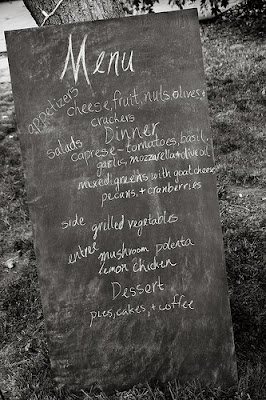 Menu
appetizers
cheese, fruit, nuts, olives, +
crackers
Dinner
salads
caprese - tomatoes, basil,
garlic, mozzarella + olive oil
mixed greens with goat cheese,
pecans, + cranberries
side grilled vegetables
entree mushroom polenta
lemon chicken
Dessert
pies, cakes, + coffee